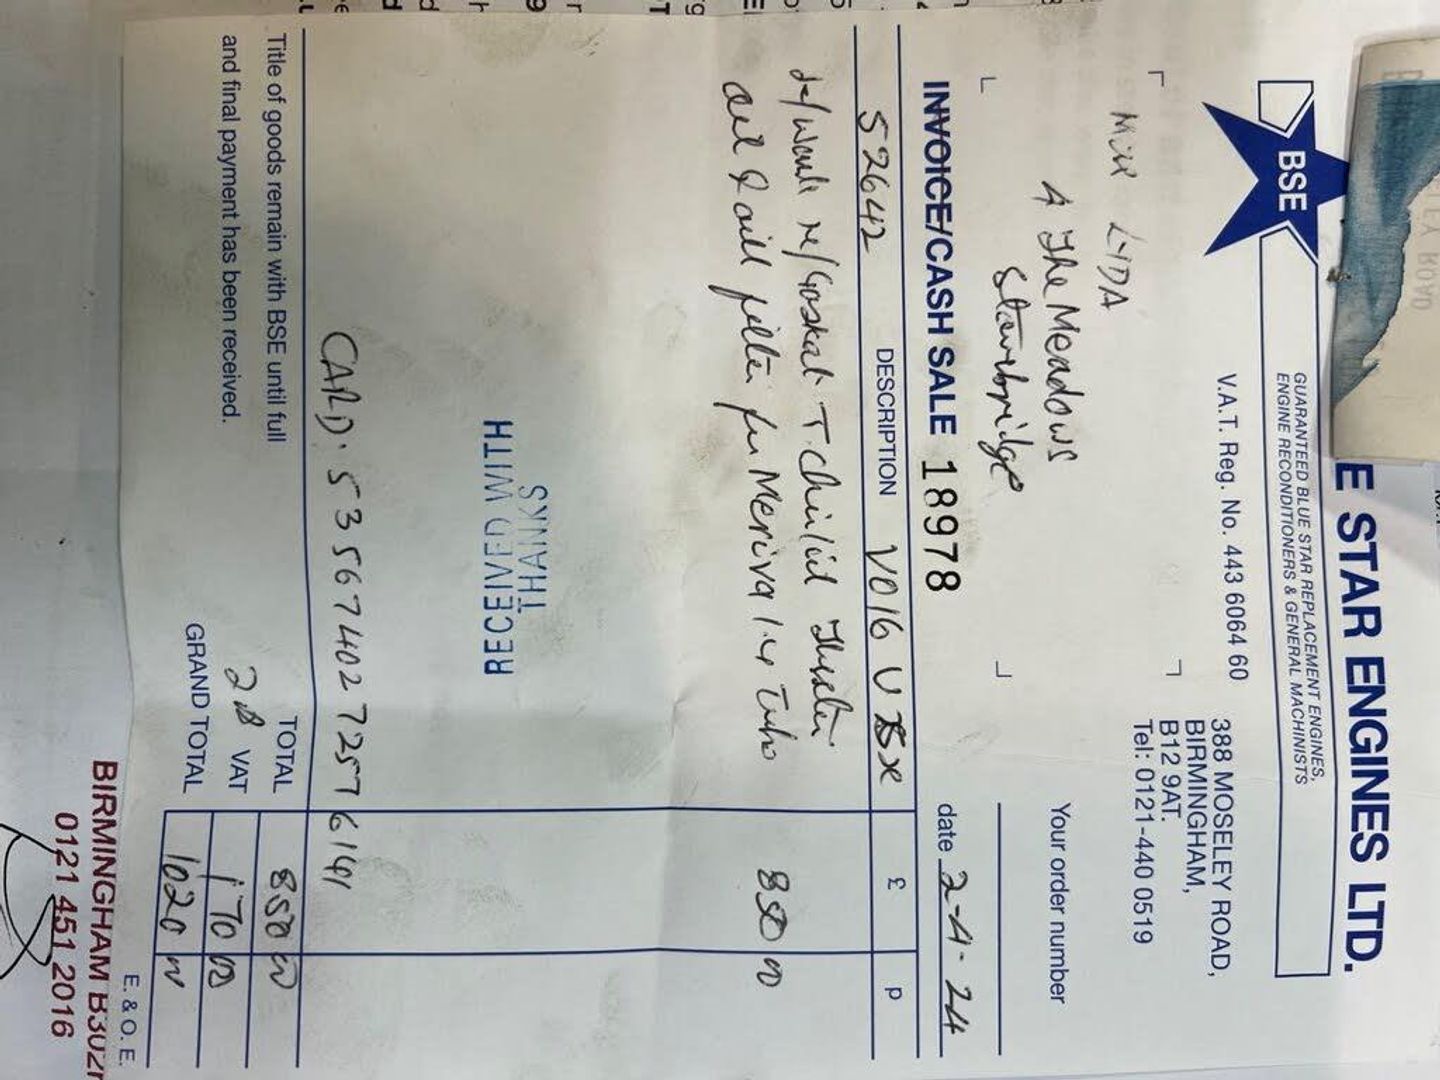 E STAR ENGINES LTD.
BSE
GUARANTEED BLUE STAR REPLACEMENT ENGINES,
ENGINE RECONDITIONERS & GENERAL MACHINISTS
V.A.T. Reg. No. 443 6064 60
388 MOSELEY ROAD,
BIRMINGHAM,
B12 9AT.
Tel: 0121-440 0519
LIDA
4 The Meadows
Stourbridge
Your order number
INVOICE/CASH SALE 18978
date 2-4-24
52642 DESCRIPTION VO16 £ p
850 00
oil & oil filter for Meriva 1.4 Turbo
RECEIVED WITH
THANKS
CARD. 5356740272576191
Title of goods remain with BSE until full
and final payment has been received.
TOTAL 850 00
20 VAT 170 00
GRAND TOTAL 1020 00
E. & O. E.
BIRMINGHAM B30
0121 451 2016